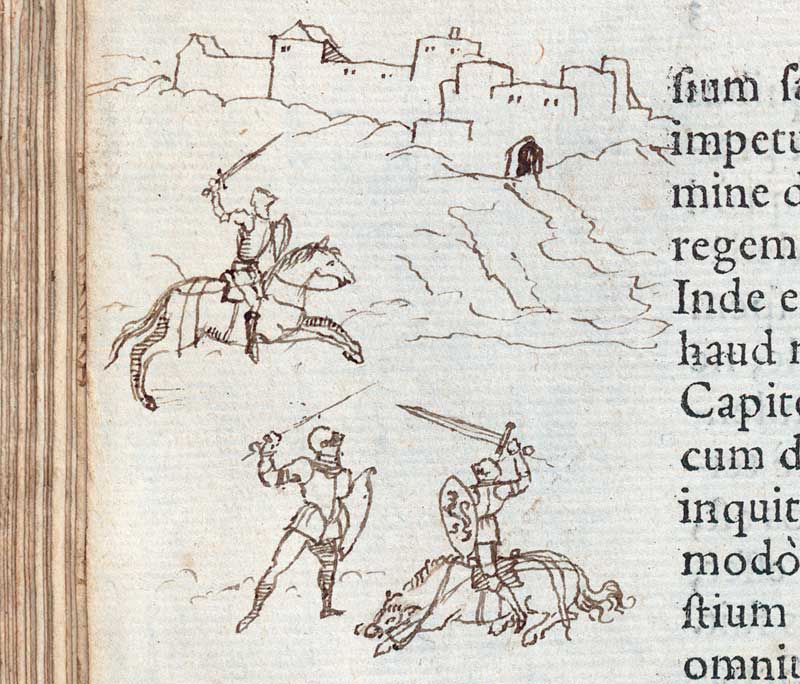 ſium ſa
impetu
mine d
regem
Inde e
haud
Capito
cum d
inquit
modò
ſtium
omniu